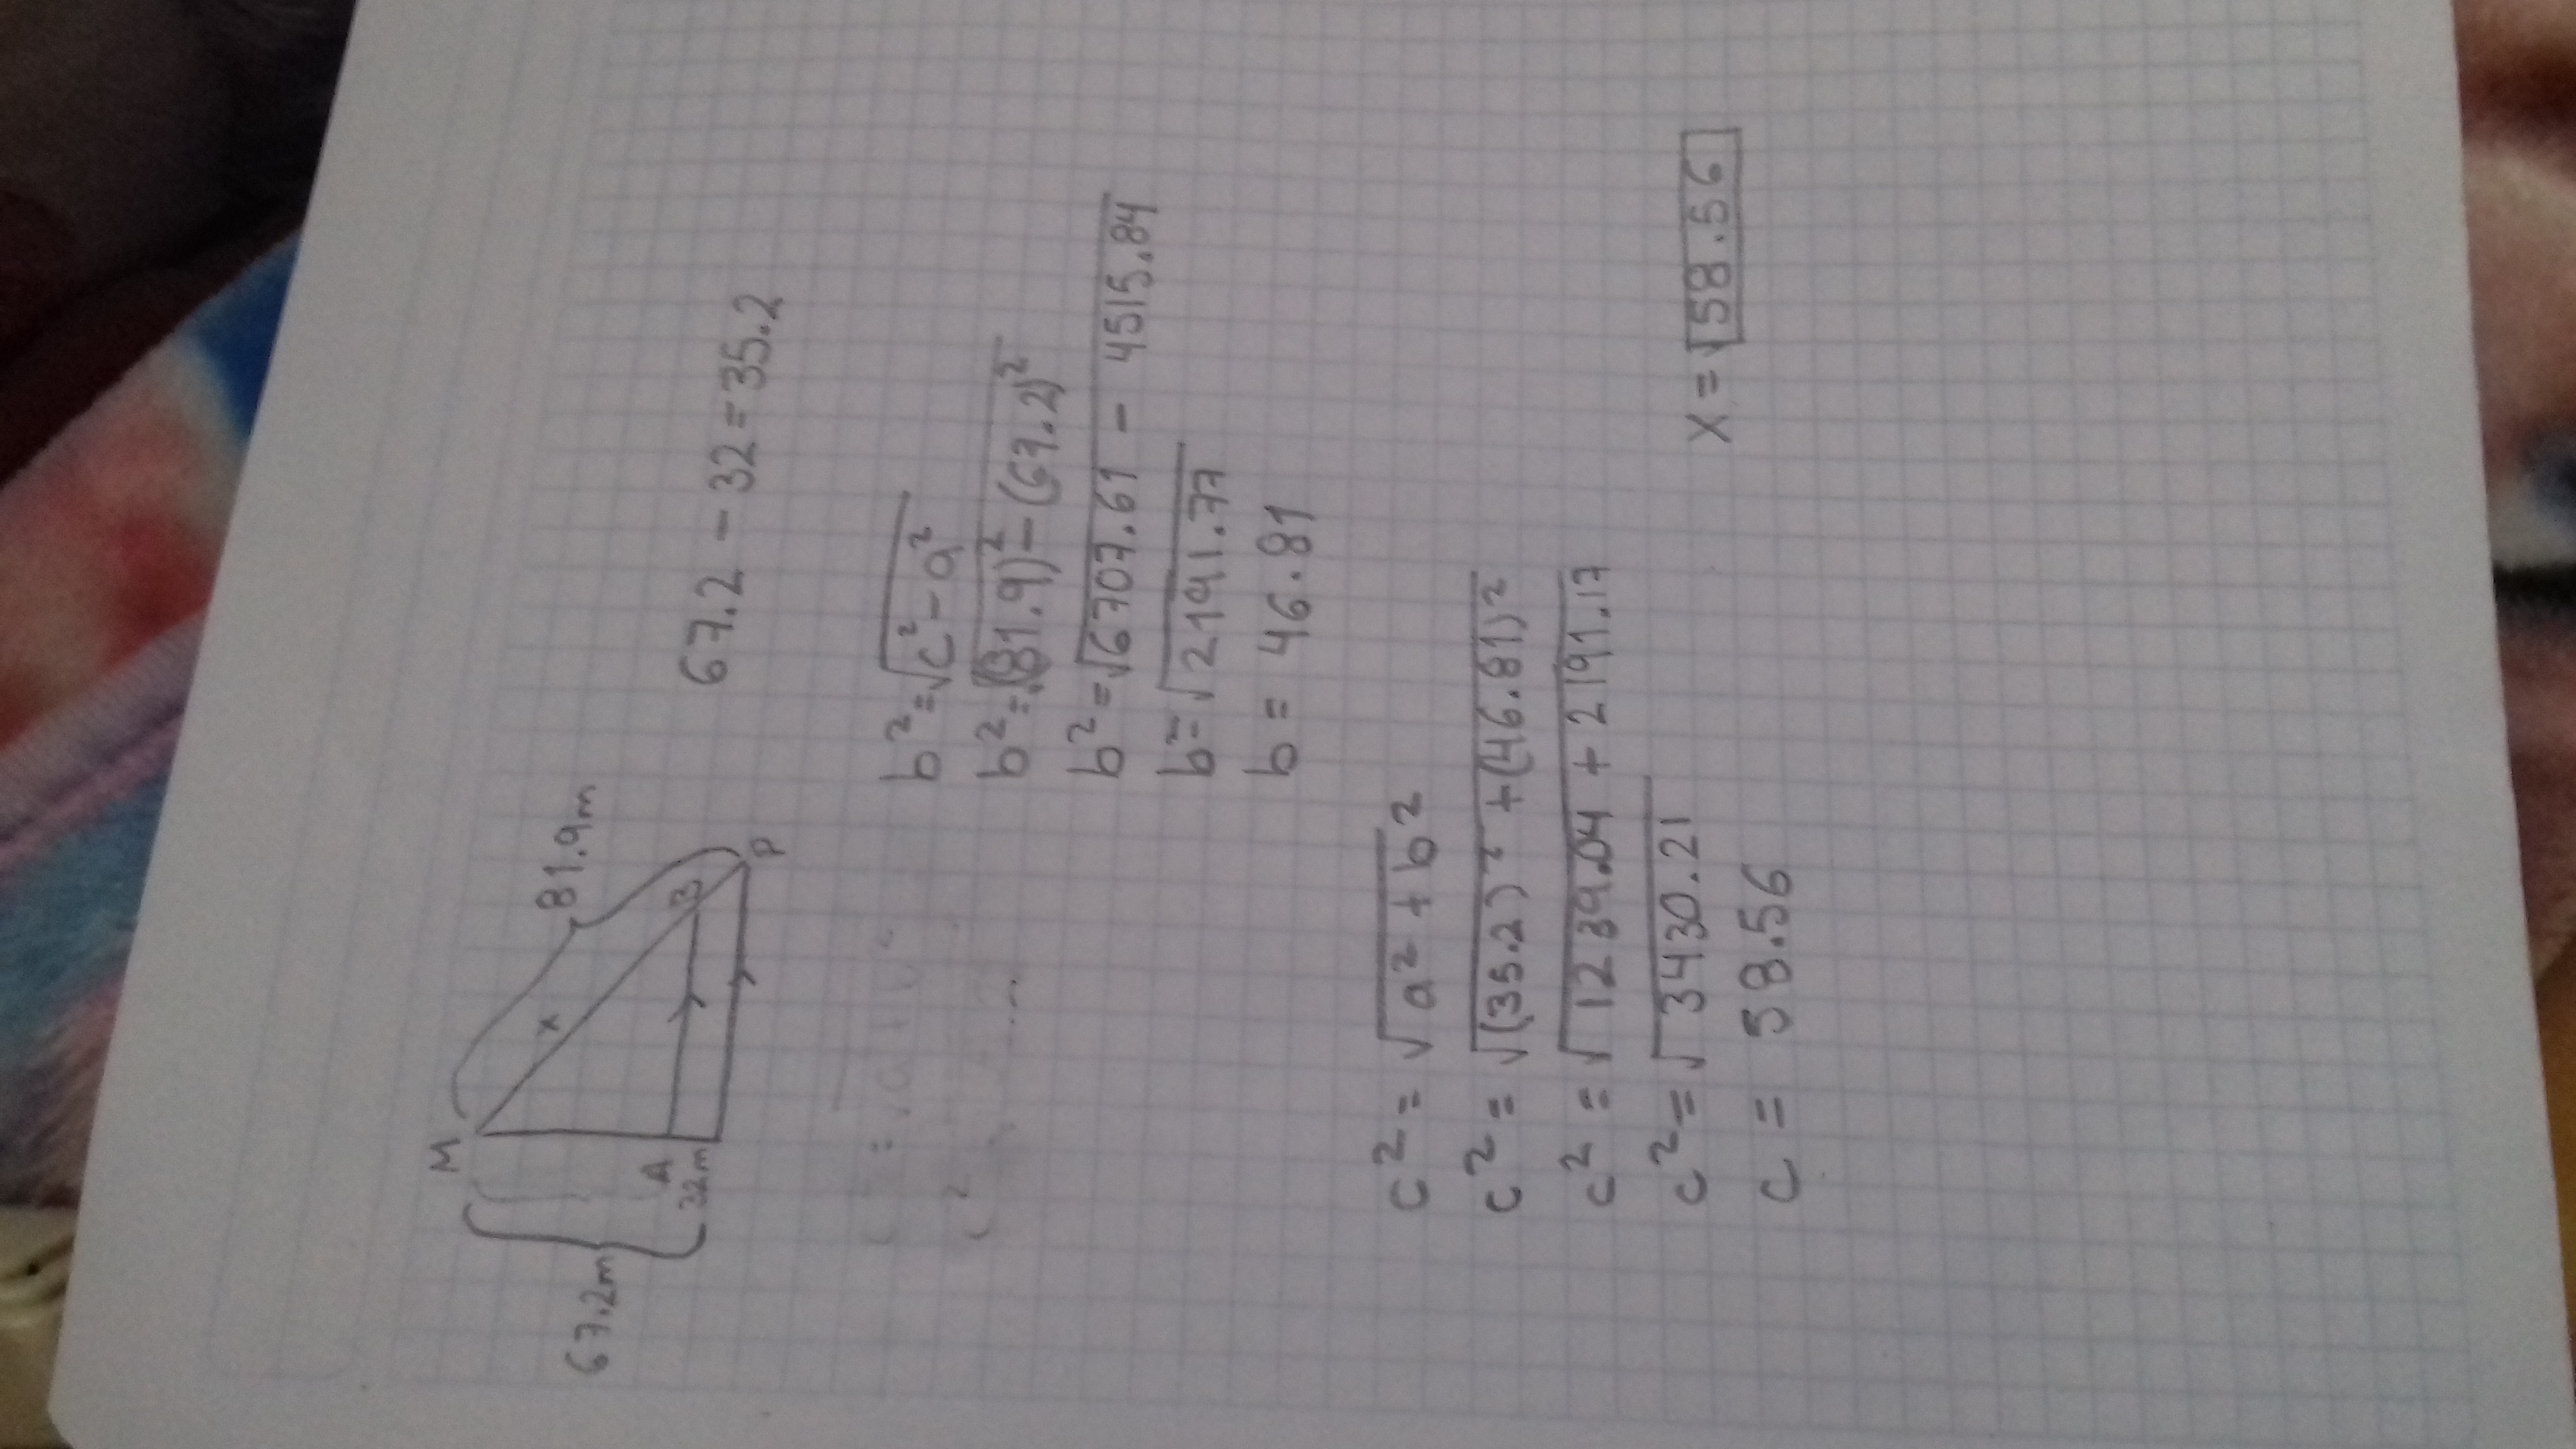 M
81.9m
x
67.2m
A
B
32m
P
67.2 - 32 = 35.2
b² = √c² - a²
b² = √(81.9)² - (67.2)²
b² = √6707.61 - 4515.84
b² = √2191.77
b = 46.81
c² = √a² + b²
c² = √(35.2)² + (46.81)²
c² = √1239.04 + 2191.17
c² = √3430.21
c = 58.56
x = √58.56